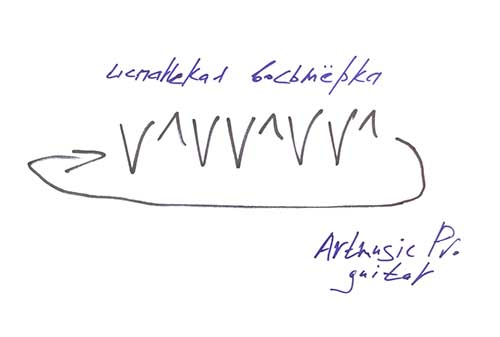 испанская восьмёрка
Artmusic Pr.
guitar